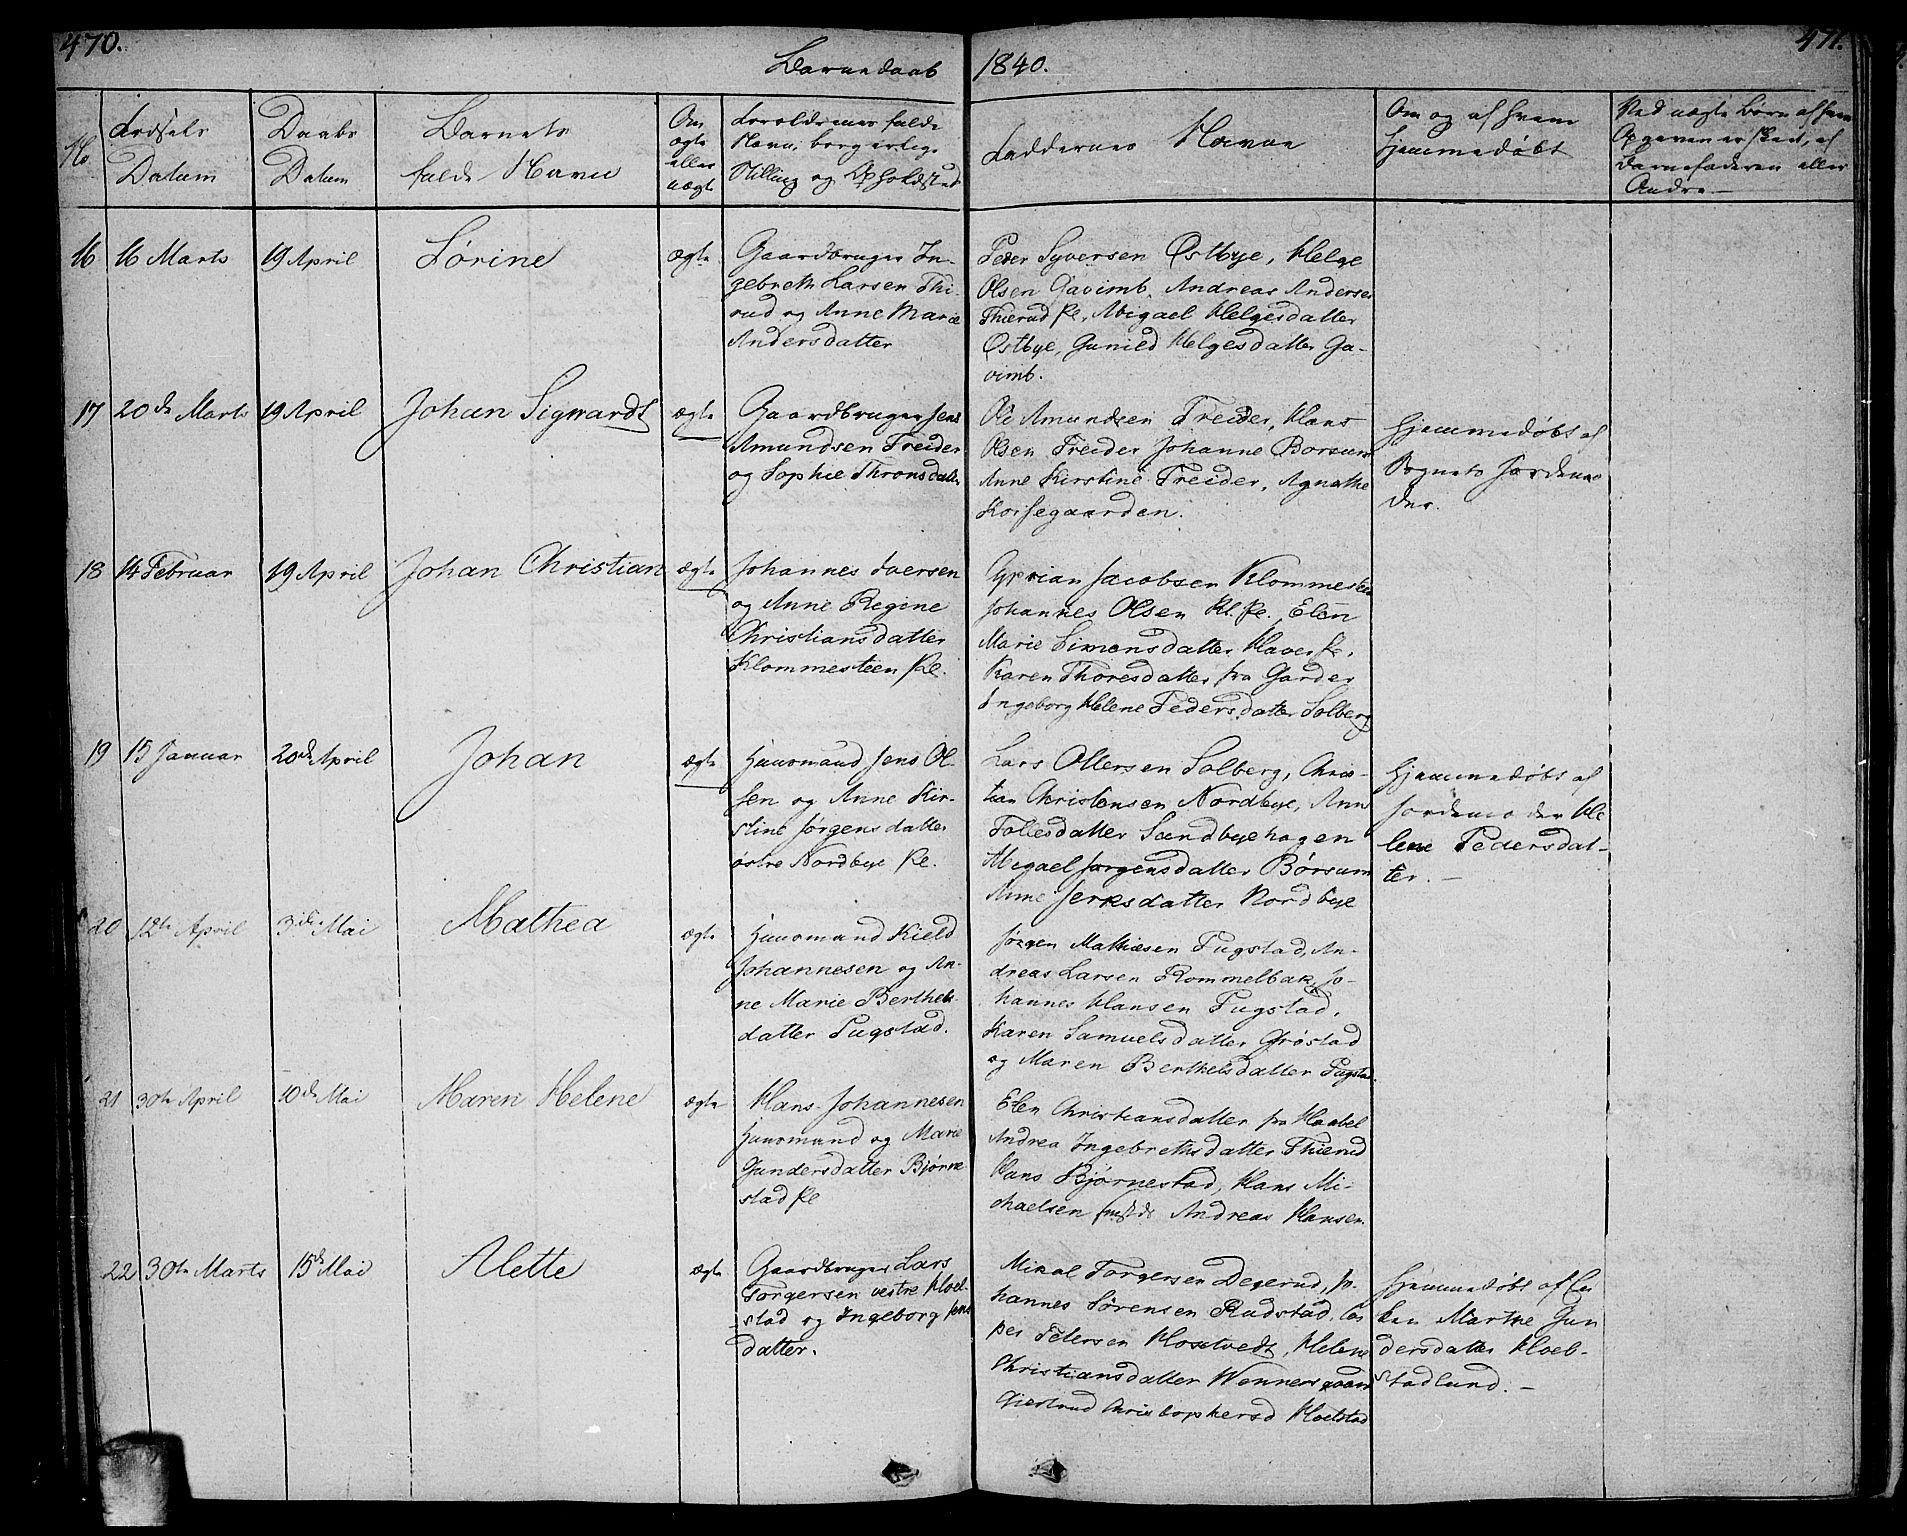 470.
Barnedaab
1840.
471.
No
Fødsels
Datum
Daabs
Datum
Barnets
fulde Navn
Om
ægte
eller
uægte
Forældrenes fulde
Navn, borgerlige
Stilling og Opholdsted
Faddernes Navne
Om og af hvem
hjemmedøbt
Ved uægte Børn af hvem
Opgaven er skeet, af
Barnefaderen eller
Andre
16
16 Marts
19 April
Sørine
ægte
Gaardbruger In-
gebreth Larsen Thi-
rud og Anne Marie
Andersdatter
Peder Syversen Østbye, Helge
Olsen Gavimb, Andreas Andersen
Thierud Pe, Abigael Helgesdatter
Østbye, Gunild Helgesdatter Ga-
vimb.
17
20de Marts
19 April
Johan Sigwardt
ægte
Gaardbruger Jens
Amundsen Freider
og Sophie Thronsdatter
Ole Amundsen Freider, Hans
Olsen Freider Johanne Borsum
Anne Kirstine Freider, Agnethe
Korsegaarden.
Hjemmedøbt af
Sognets Jordemo
der.
18
14 Februar
19 April
Johan Christian
ægte
Johannes Iversen
og Anne Regine
Christiansdatter
Klommesteen Pe.
Cyprian Jacobsen Klommesten
Johannes Olsen Kl. Pe. Elen
Marie Simensdatter Haver Pe,
Karen Thoresdatter fra Garder
Ingeborg Helene Pedersdatter Solberg
19
15 Januar
20de April
Johan
ægte
Huusmand Jens Ol-
sen og Anne Kir-
stine Jørgensdatter
østre Nordbye Pe.
Lars Ollersen Solberg, Chris-
tian Christensen Nordbye, Anne
Tollesdatter Sandbyehagen
Abigael Jørgensdatter Børsum
Anne Jensdatter Nordbye
Hjemmedøbt af
Jordemoder He
lene Pedersdat-
ter. -
20
12te April
3die Mai
Mathea
ægte
Huusmand Kield
Johannesen og An-
ne Marie Berthels-
datter Fugstad.
Jørgen Mathiesen Fugstad, An-
dreas Larsen Rommelbak, Jo-
hannes Hansen Fugstad,
Karen Samuelsdatter Grøstad
og Maren Berthelsdatter Fugstad.
21
30te April
10de Mai
Maren Helene
ægte
Hans Johannesen
Huusmand og Marie
Gundersdatter Bjørne
stad Pe
Elen Christiansdatter fra Haabel
Andrea Ingebrethsdatter Thierud
Hans Bjørnestad, Hans Mi-
chaelsen Andreas Hansen
22
30te Marts
15de Mai
Alette
ægte
Gaardbruger Lars
Torgersen vestre Hoel-
stad og Ingeborg Jens
datter.
Mikal Torgersen Degerud, Jo-
hannes Sørensen Rudstad, Cas
per Petersen Hoxtvedt, Helene
Christiansdatter Wennersgaard
Giertrud Christophersd Hoelstad
Hjemmedøbt af En
ken Marthe Gun
dersdatter Hoel-
stadlund. -